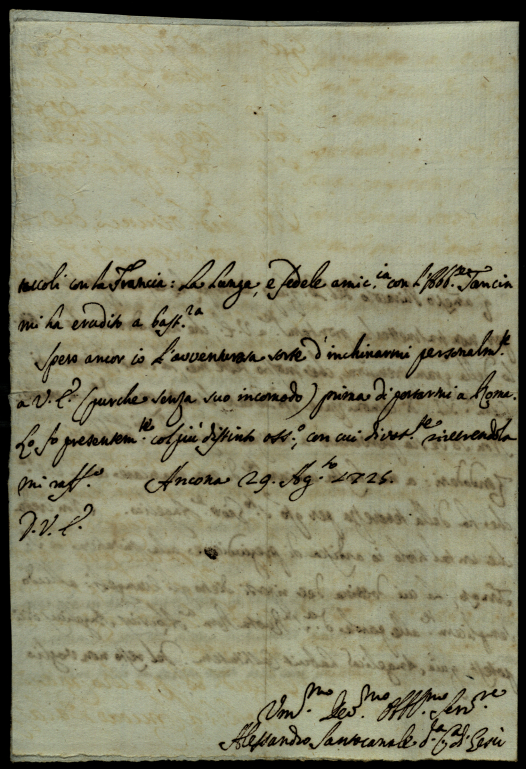 tacoli con la Francia: La lunga, e fedele amic.cia con l'Abb.te Tencin
mi ha erudito a bast.za
Spero ancor io l'avventurosa sorte d'inchinarmi personalm.te
a V. E. (purche senza suo incomodo) prima di portarmi a Roma.
Lo fo presentem.te col più distinto oss.o, con cui divot.te riverendola
mi raff.o Ancona 29. Ag.to 1725.
D. V. E.
Um.mo Dev.mo Obb.mo Serv.re
Alessandro Santocanale d.a C.a di Gesù